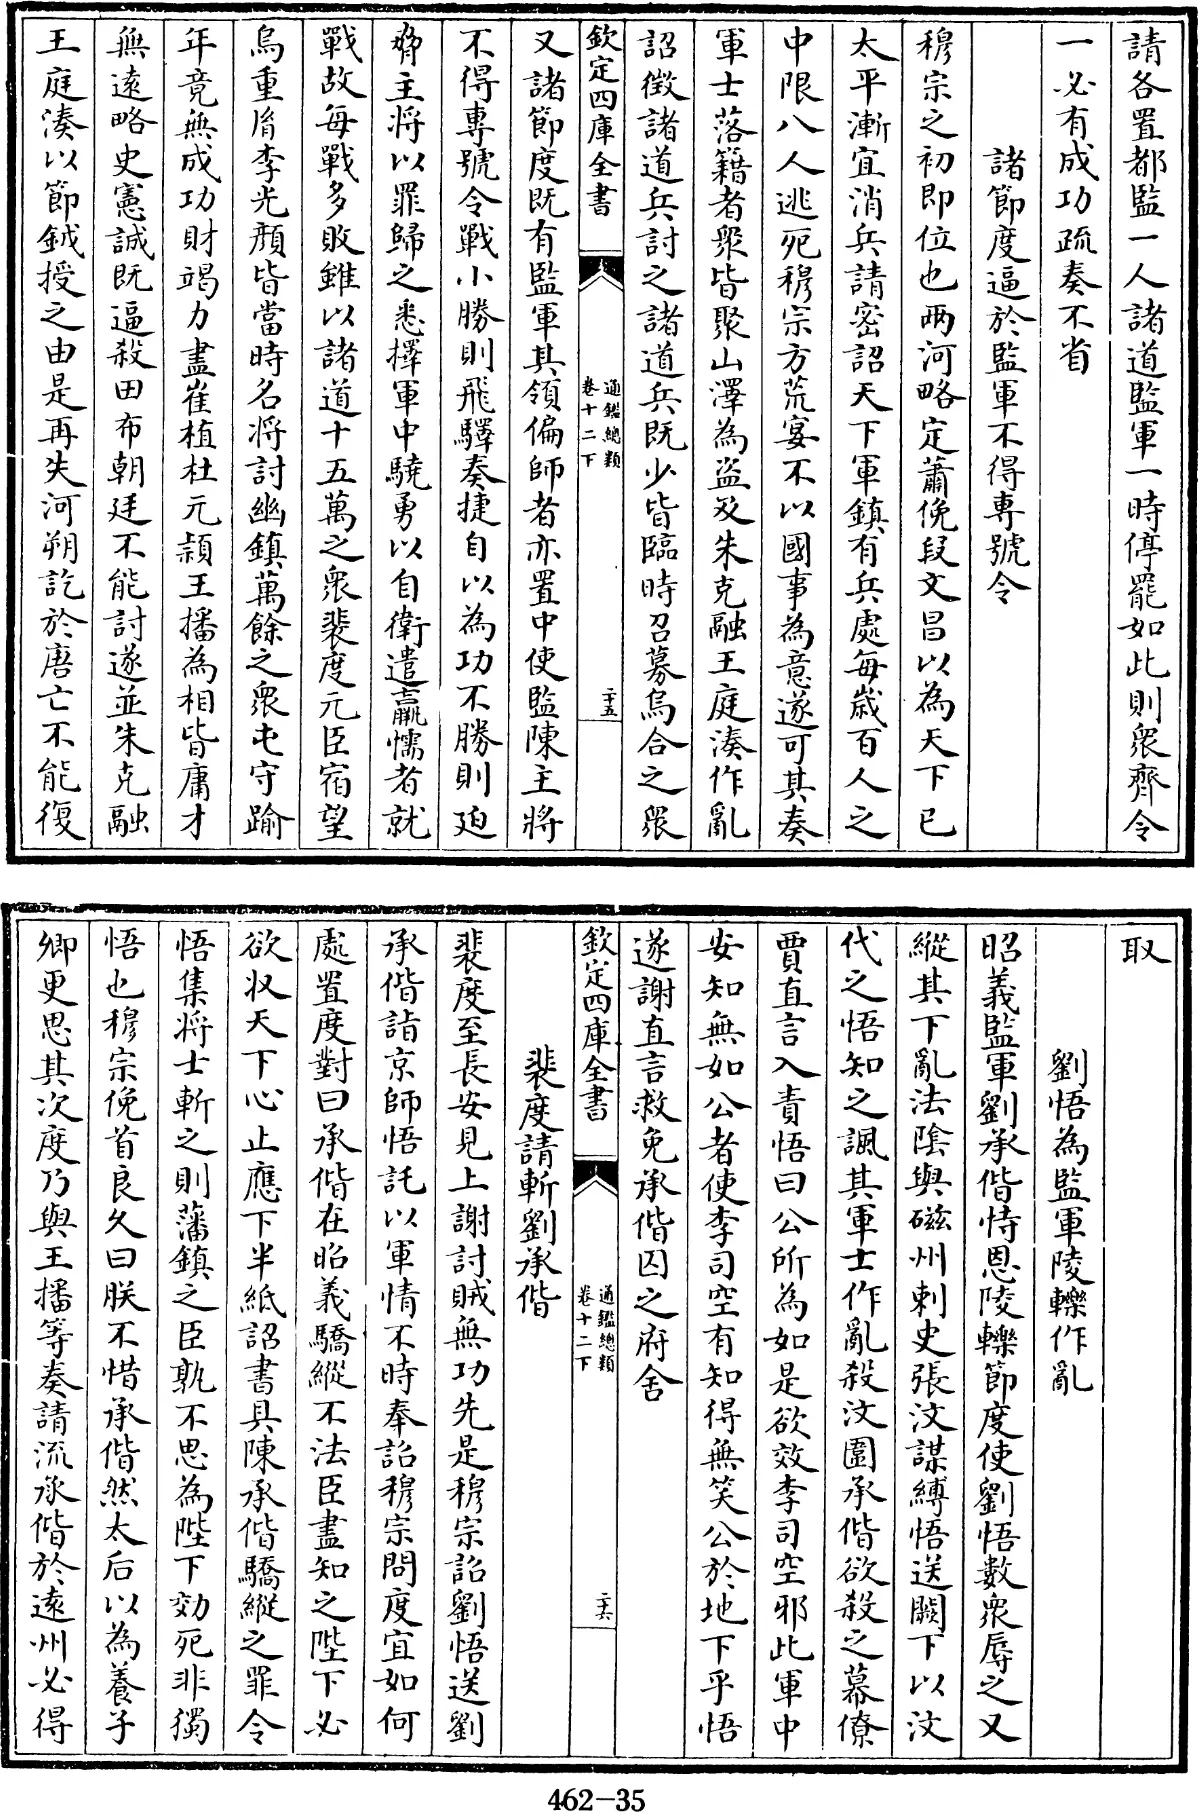 請各置都監一人諸道監軍一時停罷如此則衆齊令
一必有成功疏奏不省
諸節度逼於監軍不得專號令
穆宗之初即位也兩河略定蕭俛段文昌以為天下已
太平漸宜消兵請密詔天下軍鎮有兵處每歲百人之
中限八人逃死穆宗方荒宴不以國事為意遂可其奏
軍士落籍者衆皆聚山澤為盜及朱克融王庭湊作亂
詔徴諸道兵討之諸道兵既少皆臨時召募烏合之衆
欽定四庫全書
通鑑總類
卷十二下
二十五
又諸節度既有監軍其領偏師者亦置中使監陳主將
不得專號令戰小勝則飛驛奏捷自以為功不勝則迫
脅主將以罪歸之悉擇軍中驍勇以自衛遣羸懦者就
戰故每戰多敗雖以諸道十五萬之衆裴度元臣宿望
烏重𦙍李光顔皆當時名將討幽鎮萬餘之衆屯守踰
年竟無成功財竭力盡崔植杜元潁王播為相皆庸才
無遠略史憲誠既逼殺田布朝廷不能討遂並朱克融
王庭湊以節鉞授之由是再失河朔訖於唐亡不能復
取
劉悟為監軍陵轢作亂
昭義監軍劉承偕恃恩陵轢節度使劉悟數衆辱之又
縱其下亂法隂與磁州刺史張汶謀縛悟送闕下以汶
代之悟知之諷其軍士作亂殺汶圍承偕欲殺之幕僚
賈直言入責悟曰公所為如是欲效李司空邪此軍中
安知無如公者使李司空有知得無笑公於地下乎悟
遂謝直言救免承偕囚之府舍
欽定四庫全書
通鑑總類
卷十二下
二十六
裴度請斬劉承偕
裴度至長安見上謝討賊無功先是穆宗詔劉悟送劉
承偕詣京師悟託以軍情不時奉詔穆宗問度宜如何
處置度對曰承偕在昭義驕縱不法臣盡知之陛下必
欲収天下心止應下半紙詔書具陳承偕驕縱之罪令
悟集將士斬之則藩鎮之臣孰不思為陛下効死非獨
悟也穆宗俛首良久曰朕不惜承偕然太后以為養子
卿更思其次度乃與王播等奏請流承偕於遠州必得
462-35